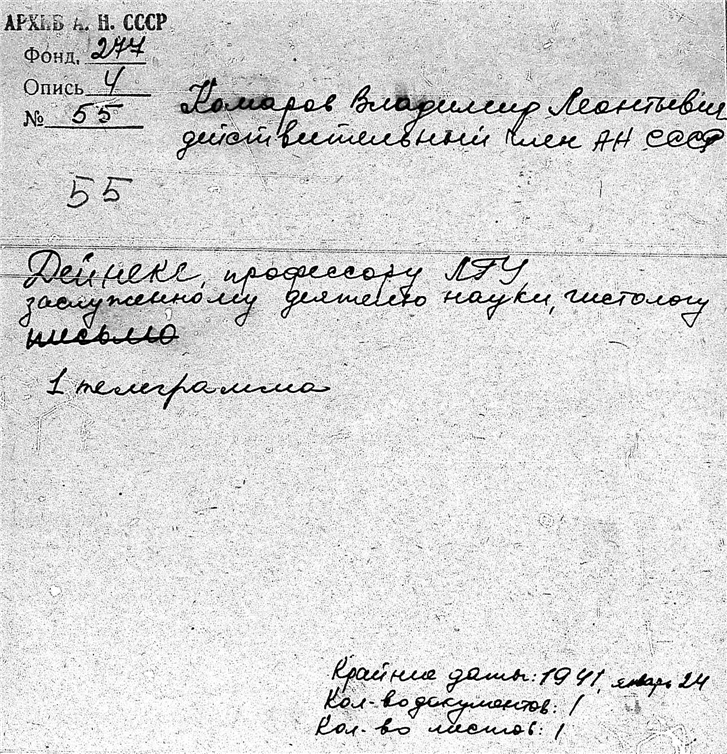 АРХИВ А. Н. СССР
Фонд. 277
Опись 4
№ 55
Комаров Владимир Леонтьевич
действительный член АН СССР
55
Дейнеке, профессору ЛГУ
заслуженному деятелю науки, гистологу
письмо
1 телеграмма
Крайние даты: 1941, январь 24
Кол-во документов: 1
Кол-во листов: 1